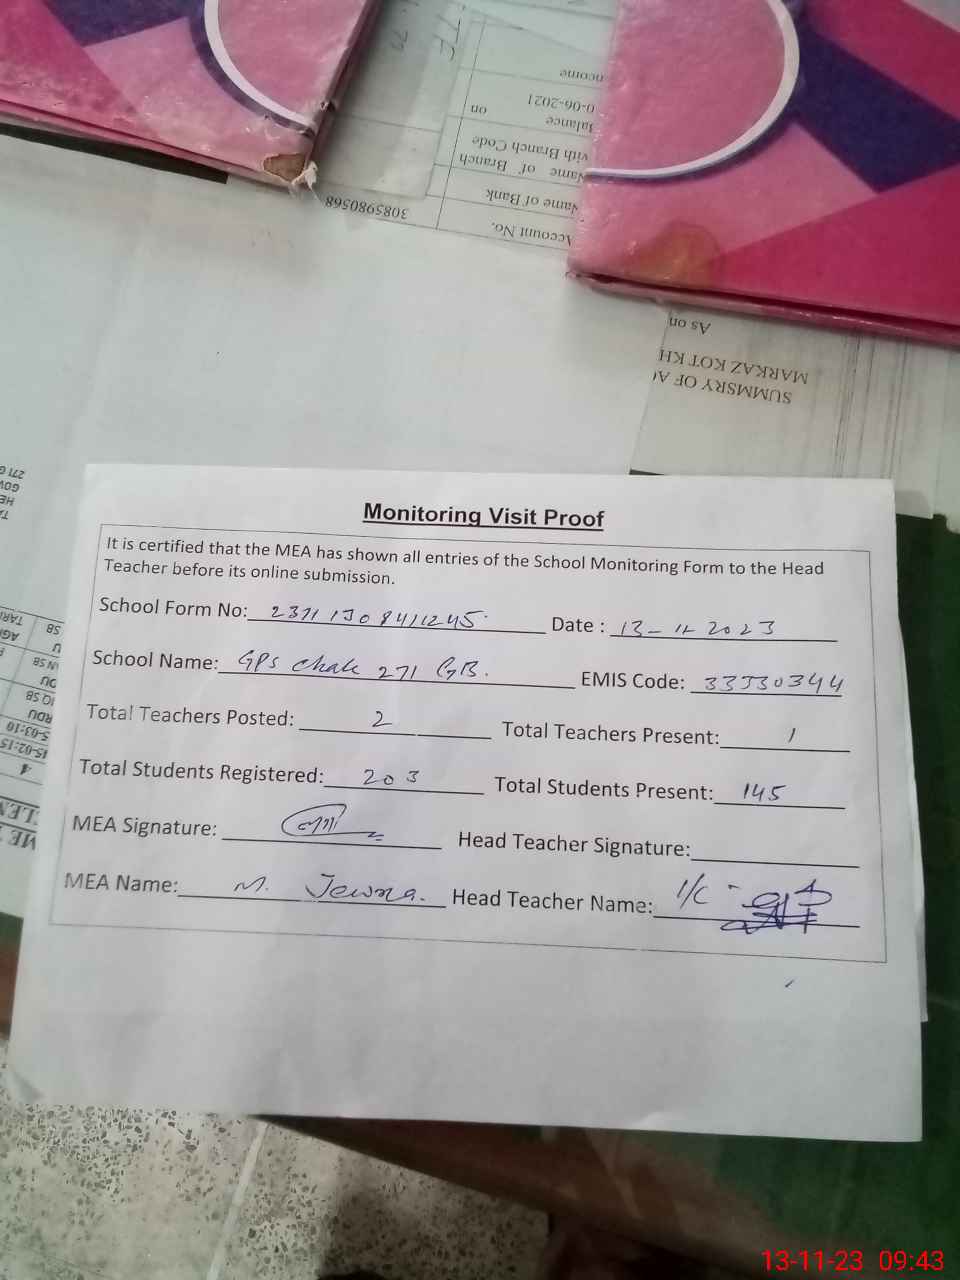 ncome
0-06-2021
Balance on
with Branch Code
Name of Branch
Name of Bank
3085980568
Account No.
As on
MARKAZ KOT KH
SUMMSRY OF A
271 G
Monitoring Visit Proof
It is certified that the MEA has shown all entries of the School Monitoring Form to the Head
Teacher before its online submission.
School Form No: Date : 13-11-2023
School Name: GPS Chak 271 GB. EMIS Code: 33330344
Total Teachers Posted: 2 Total Teachers Present: 1
Total Students Registered: 203 Total Students Present: 145
MEA Signature: Head Teacher Signature:
MEA Name: M. Head Teacher Name: I/C -
13-11-23 09:43